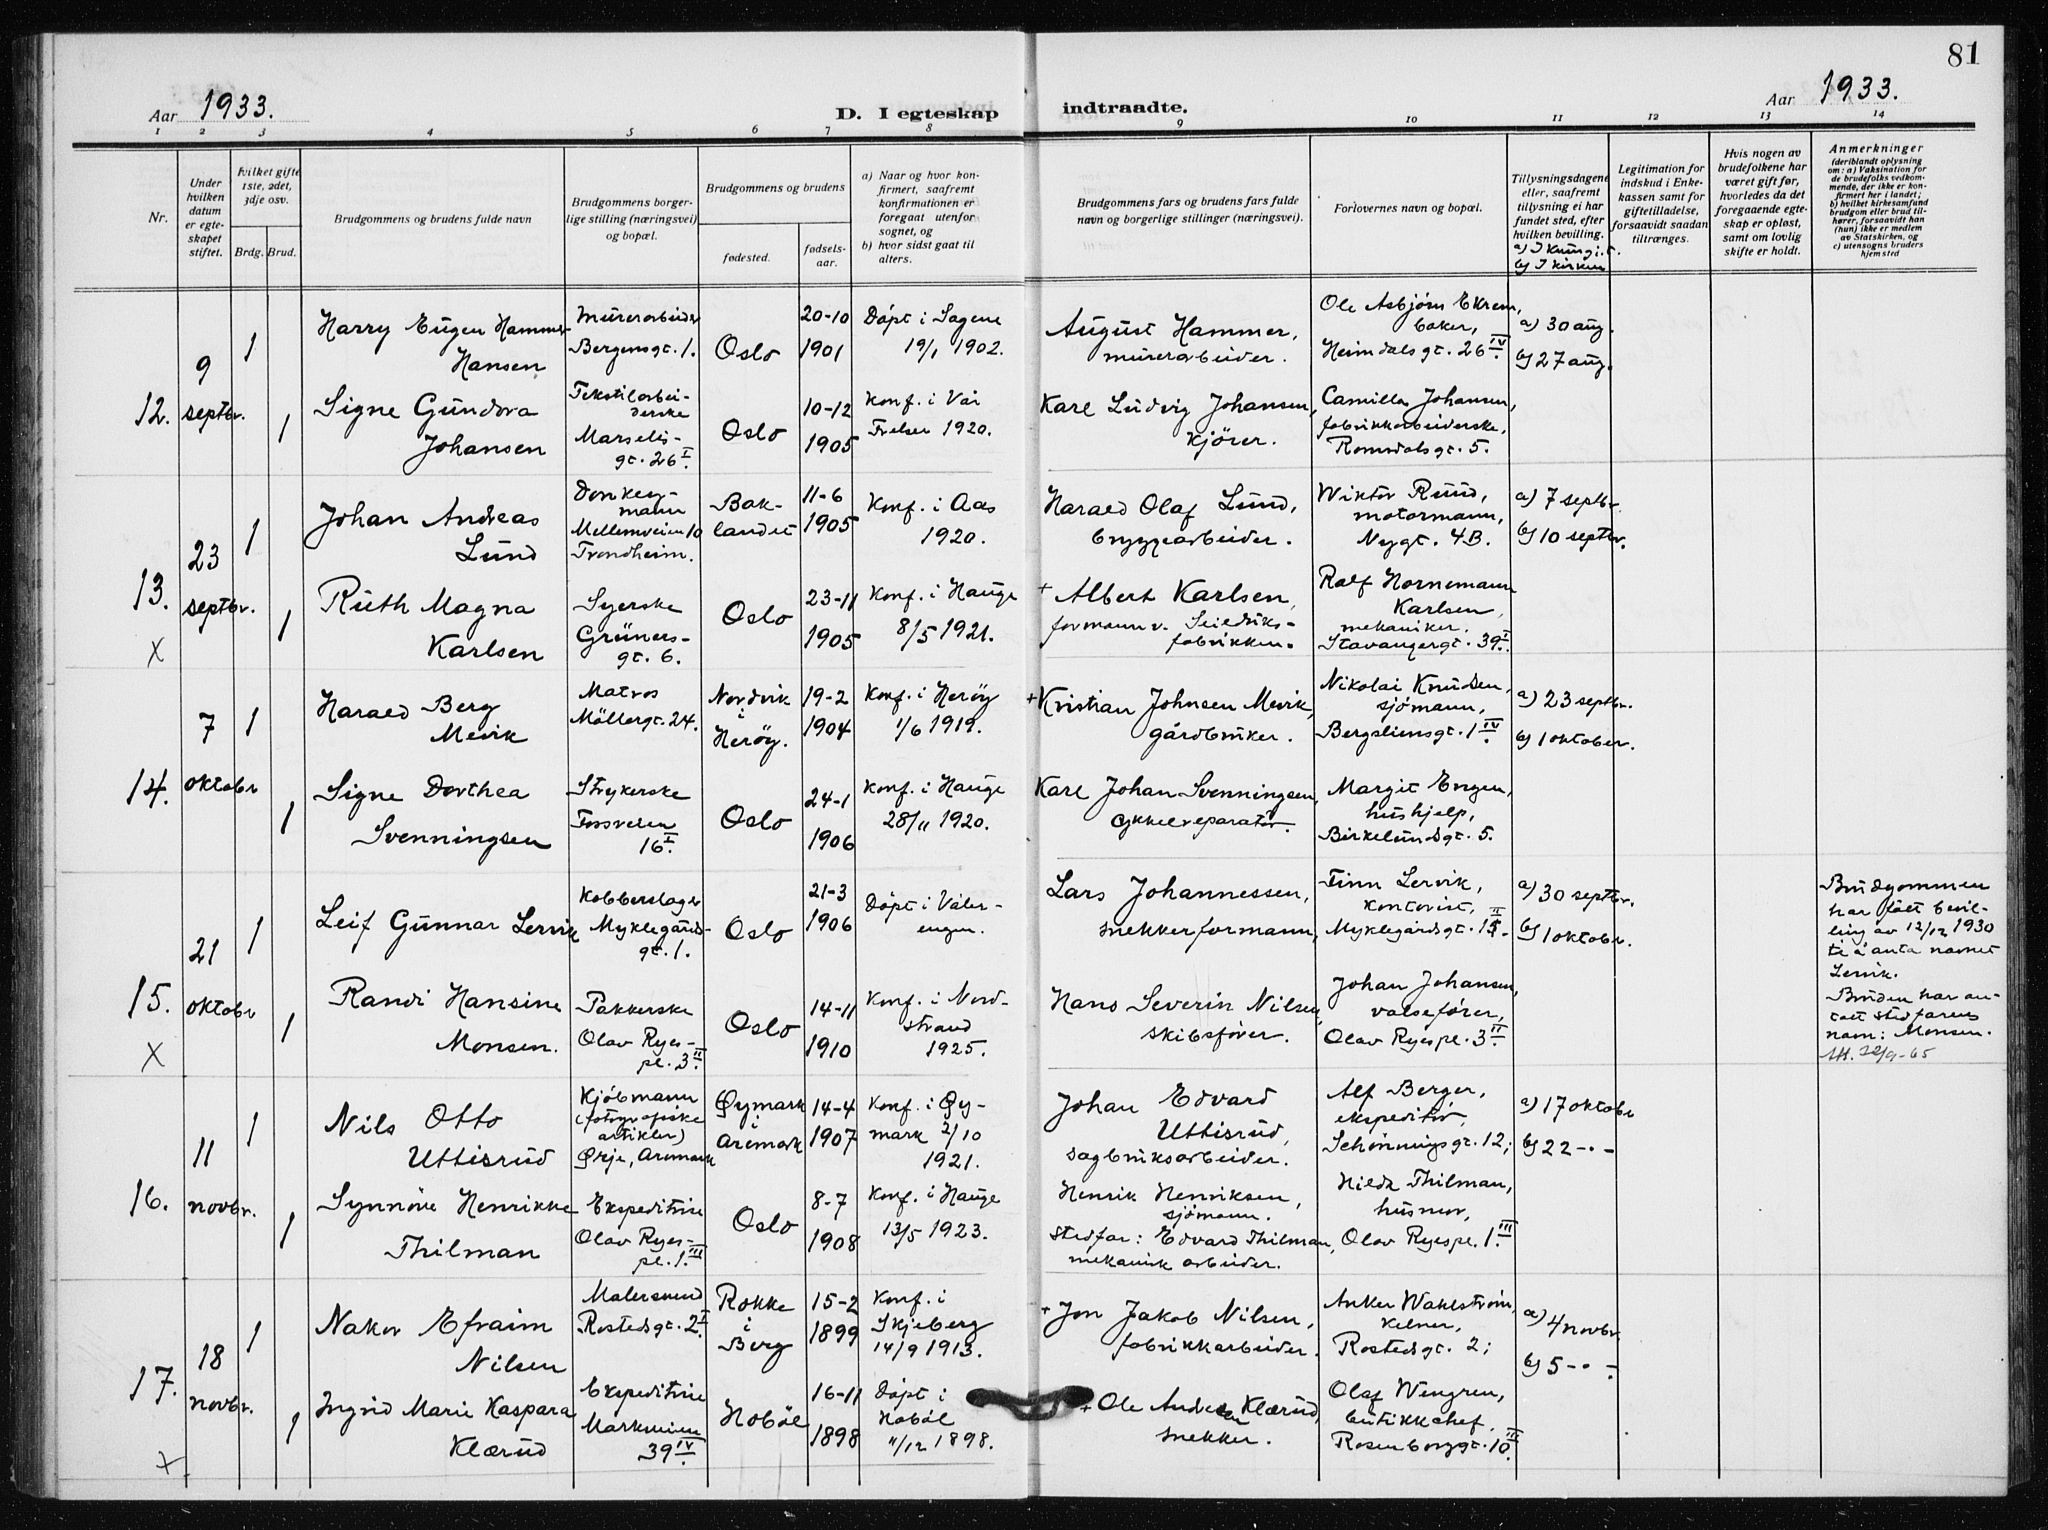 81
Aar 1933.
D. I egteskap indtraadte.
Aar 1933.
1 2 3 4 5 6 7 8 9 10 11 12 13 14
Nr.
Under
hvilken
datum
er egte-
skapet
stiftet.
hvilket gifte
1ste, 2det,
3dje osv.
Brdg. Brud.
Brudgommens og brudens fulde navn
Brudgommens borger-
lige stilling (næringsvei)
og bopæl.
Brudgommens og brudens
fødested.
fødsels-
aar.
a) Naar og hvor kon-
firmert, saafremt
konfirmationen er
foregaat utenfor
sognet, og
b) hvor sidst gaat til
alters.
Brudgommens fars og brudens fars fulde
navn og borgerlige stillinger (næringsvei).
Forlovernes navn og bopæl.
Tillysningsdagene
eller, saafremt
tillysning ei har
fundet sted, efter
hvilken bevilling.
b) I kirken
Legitimation for
indskud i Enke-
kassen samt for
giftetilladelse,
forsaavidt saadan
tiltrænges.
Hvis nogen av
brudefolkene har
været gift før,
hvorledes da det
foregaaende egte-
skap er opløst,
samt om lovlig
skifte er holdt.
Anmerkninger
(deriblandt oplysning
om: a) Vaksination for
de brudefolks vedkom-
mende, der ikke er kon-
firmert her i landet;
b) hvilket kirkesamfund
brudgom eller brud til-
hører, forsaavidt han
(hun) ikke er medlem
av Statskirken, og
c) utensogns bruders
hjemsted
12.
9
septbr.
1
Harry Eugen Hammer
Hansen
Murerarbeider
Bergensgt. 1.
Oslo
20-10
1901
Døpt i Sagene
19/1 1902.
August Hammer,
murerarbeider.
Ole Asbjørn Ekrem,
baker,
Heimdalsgt. 26 IV.
a) 30 aug.
b) 27 aug.
1
Signe Gundora
Johansen
Tekstilarbei-
derske
Marselis-
gt. 26 I.
Oslo
10-12
1905
Konf. i Vår
Frelser 1920.
Karl Ludvig Johansen,
kjører.
Camilla Johansen,
fabrikkarbeiderske,
Romsdalsgt. 5.
13.
X
23
septbr.
1
Johan Andreas
Lund
Donkey-
mann
Mellemveien 10
Trondheim.
Bak-
landet
11-6
1905
Konf. i Aas
1920.
Harald Olaf Lund,
bryggearbeider.
Wiktor Ruud,
motormann,
Nygt. 4B.
a) 7 septbr.
b) 10 septbr.
1
Ruth Magna
Karlsen
Syerske
Grüners-
gt. 6.
Oslo
23-11
1905
Konf. i Hauge
8/5 1921.
+ Albert Karlsen,
formann v. Seildriks-
fabrikken.
Ralf Hornemann
Karlsen,
mekaniker,
Stavangergt. 39 I.
14.
7
oktobr
1
Harald Berg
Mevik
Matros
Möllergt. 24.
Nordvik
i
Herøy.
19-2
1904
Konf. i Herøy
1/6 1919.
+ Kristian Johnsen Mevik,
gårdbruker.
Nikolai Knudsen,
sjømann,
Bergsliensgt. 1 IV.
a) 23 septbr.
b) 1 oktober.
1
Signe Dorthea
Svenningsen
Strykerske
Fossveien
16 I.
Oslo
24-1
1906
Konf. i Hauge
28/11 1920.
Karl Johan Svenningsen,
cykkelreparatør.
Margit Engen,
hushjelp,
Birkelundsgt. 5.
15.
X
21
oktobr
1
Leif Gunnar Lervik
Kobberslager
Myklegårds-
gt. 1.
Oslo
21-3
1906
Døpt i Våler-
engen.
Lars Johannessen,
snekkerformann,
Finn Lervik,
kontorist,
Myklegårdsgt. 1 II.
a) 30 septbr.
b) 1 oktobr.
Brudgommen
har fått bevil-
ling av 12/12 1930
til å anta navnet
Lervik.
1
Randi Hansine
Monsen.
Pakkerske
Olav Ryes-
pl. 3 II.
Oslo
14-11
1910
Konf. i Nord-
strand
1925.
Hans Severin Nilsen,
skibsfører.
Johan Johansen,
valsefører,
Olav Ryespl. 3 II.
Bruden har an-
tatt stedfarens
navn: Monsen.
16.
11
novbr.
1
Nils Otto
Uttisrud
Kjöbmann
(fotografiske
artikler)
Ørje, Aremark
Øymark
i
Aremark
14-4
1907
Konf. i Øy-
mark 2/10
1921.
Johan Edvard
Uttisrud,
sagbruksarbeider.
Alf Berger,
ekspeditør,
Schønningsgt. 12;
a) 17 oktobr
b) 22 - " -
1
Synnöve Henrikke
Thilman
Ekspeditrise
Olav Ryes-
pl. 1 III.
Oslo
8-7
1908
Konf. i Hauge
13/5 1923.
Henrik Henriksen,
sjömann.
Stedfar: Edvard Thilman,
mekanisk arbeider.
Hilda Thilman,
husmor,
Olav Ryespl. 1 III.
17.
X
18
novbr.
1
Nakor Efraim
Nilsen
Malersvend
Rostedsgt. 2 I.
Rokke
i
Berg
15-2
1899
Konf. i
Skjeberg
14/9 1913.
+ Jon Jakob Nilsen,
fabrikkarbeider.
Anker Wahlström,
kelner,
Rostedsgt. 2;
a) 4 novbr.
b) 5 - " -
1
Ingrid Marie Kaspara
Klærud
Ekspeditrise
Markveien
39 IV.
Hobøl
16-11
1898
Døpt i
Hobøl
11/12 1898.
+ Ole Andersen Klærud,
snekker.
Olaf Wengren,
butikkchef,
Rosenborggt. 10 III.